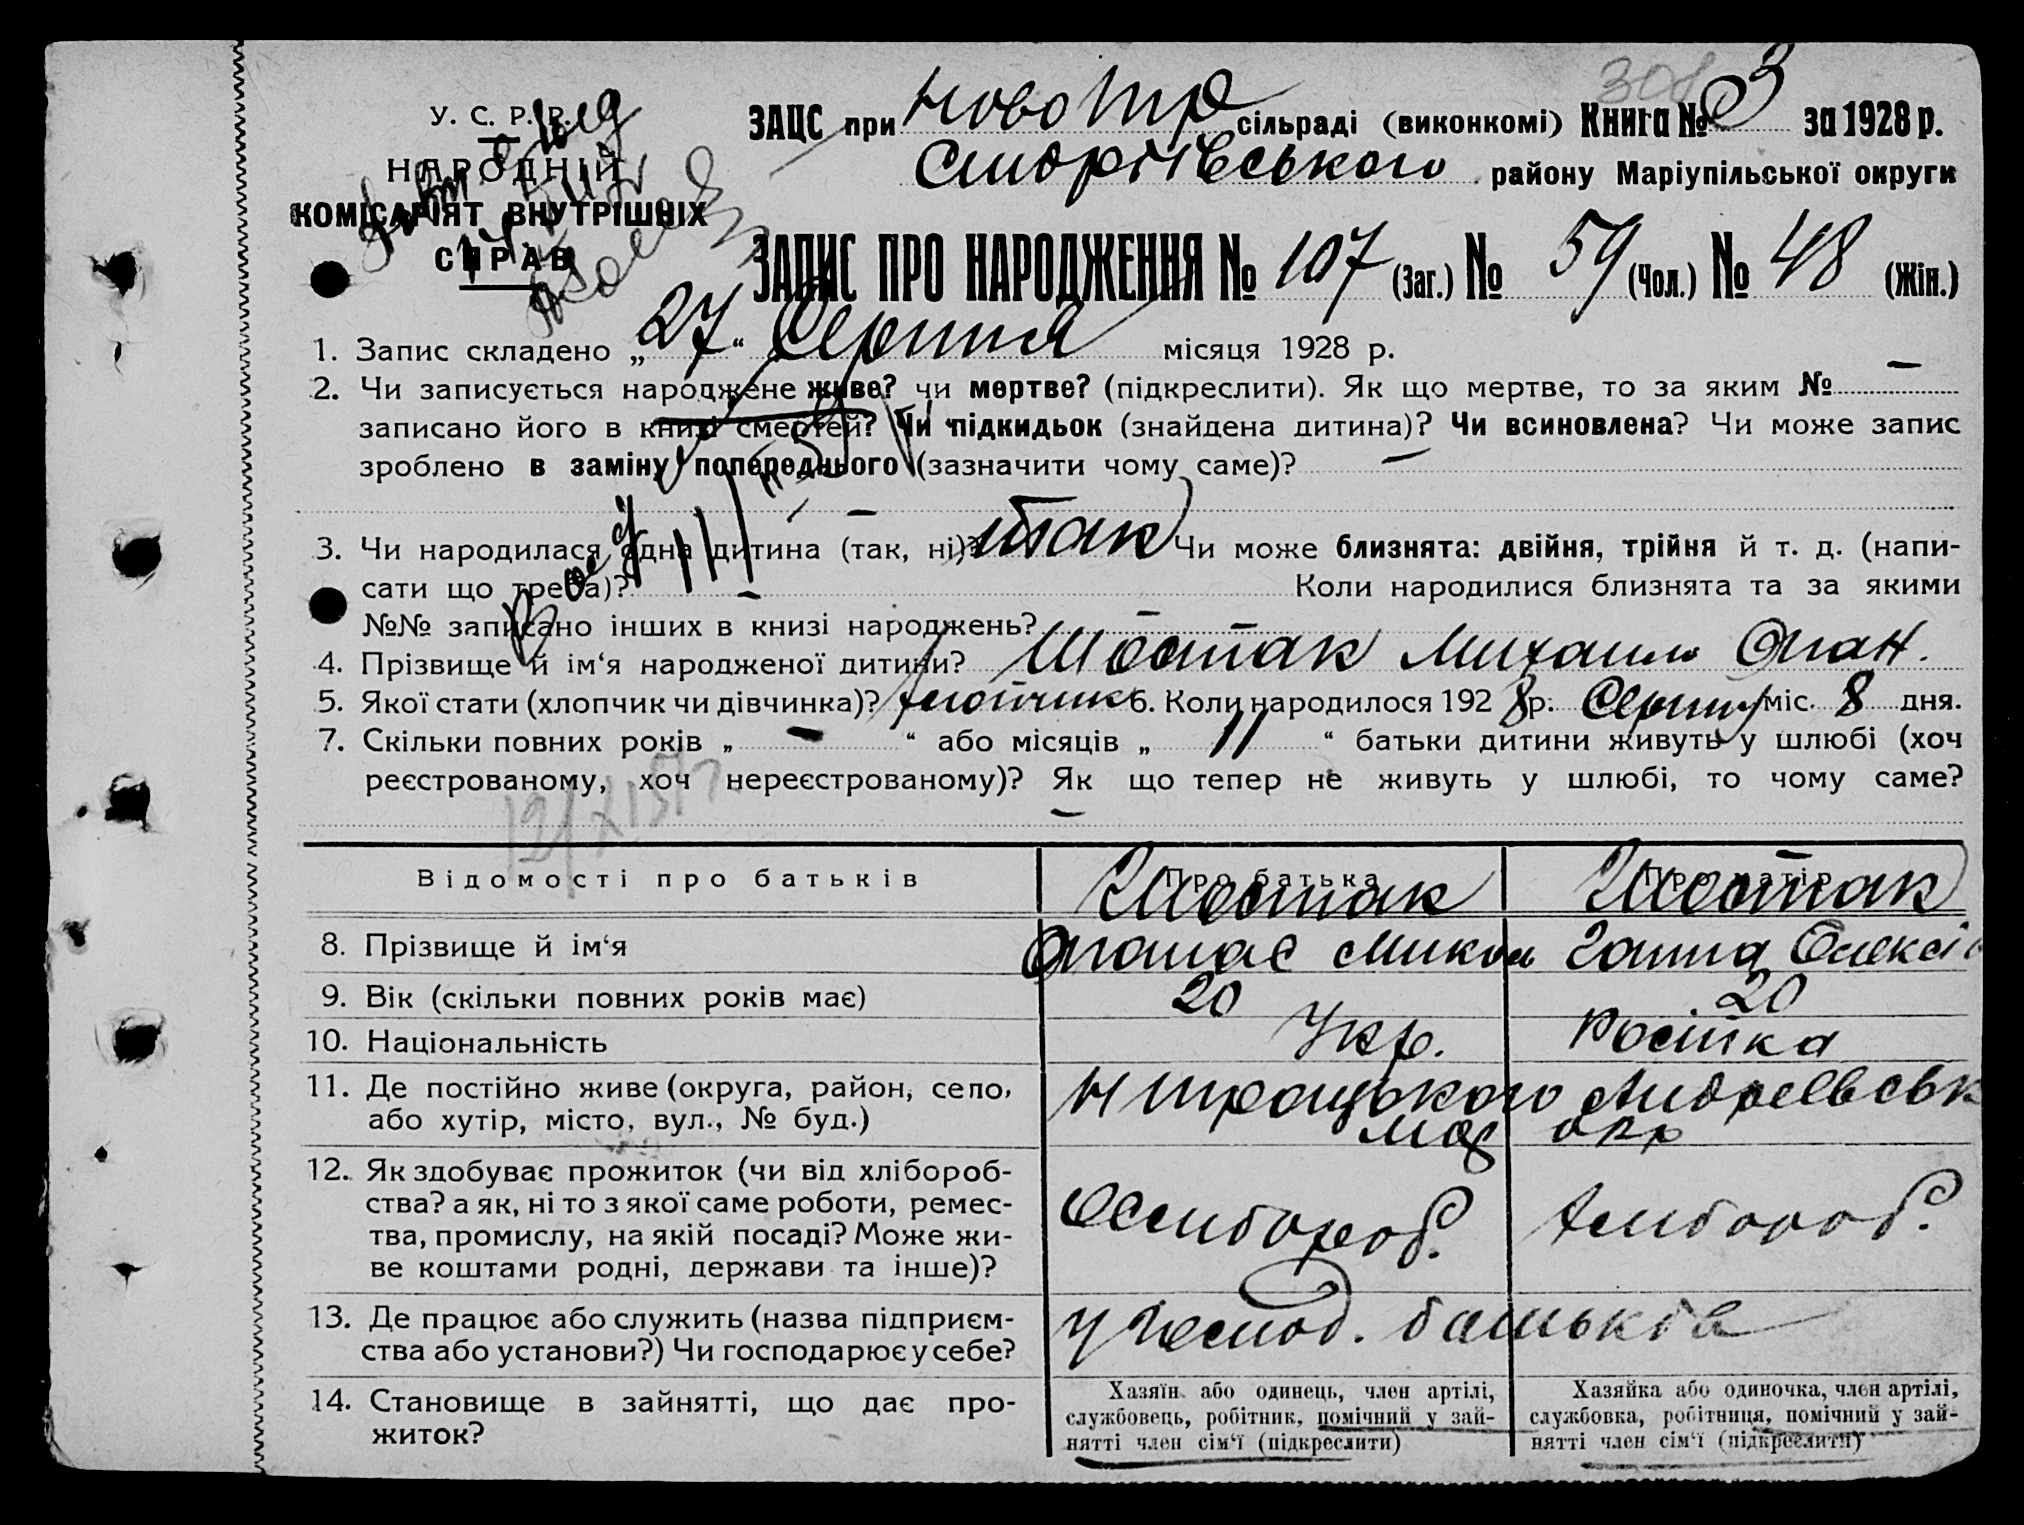 308
У. С. Р. Р.
НАРОДНІЙ
КОМІСАРІЯТ ВНУТРІШНІХ
СПРАВ
ЗАЦС при Ново Тр сільраді (виконкомі) Книга № 3 за 1928 р.
району Маріупільської округи
ЗАПИС ПРО НАРОДЖЕННЯ № 107 (Заг.) № 59 (Чол.) № 48 (Жін.)
1. Запис складено „27“ Серпня місяця 1928 р.
2. Чи записується народжене живе? чи мертве? (підкреслити). Як що мертве, то за яким № —
записано його в книзі смертей? Чи підкидьок (знайдена дитина)? Чи всиновлена? Чи може запис
зроблено в заміну попереднього (зазначити чому саме)? —
—
3. Чи народилася одна дитина (так, ні)? так Чи може близнята: двійня, трійня й т. д. (напи-
сати що треба)? — Коли народилися близнята та за якими
№№ записано інших в книзі народжень? —
4. Прізвище й ім‘я народженої дитини? Шостак Михайло Опан.
5. Якої стати (хлопчик чи дівчинка)? хлопчик 6. Коли народилося 1928 р. Серпня міс. 8 дня.
7. Скільки повних років „ — “ або місяців „ 11 “ батьки дитини живуть у шлюбі (хоч
реєстрованому, хоч нереєстрованому)? Як що тепер не живуть у шлюбі, то чому саме?
—
Відомості про батьків Про батька Про матір
Шостак Шостак
8. Прізвище й ім‘я Опанас Микол Ганна Олексів
9. Вік (скільки повних років має) 20 20
10. Національність Укр. Російка
11. Де постійно живе (округа, район, село, Н Троцького Андреевськ
або хутір, місто, вул., № буд.) Мар окр
12. Як здобуває прожиток (чи від хлібороб-
ства? а як, ні то з якої саме роботи, ремес- Хлибороб. Хлибороб.
тва, промислу, на якій посаді? Може жи-
ве коштами родні, держави та інше)?
13. Де працює або служить (назва підприєм- У господ. батькга
ства або установи?) Чи господарює у себе?
14. Становище в зайнятті, що дає про-
житок?
Хазяїн або одинець, член артілі,
службовець, робітник, помічний у зай-
нятті член сім‘ї (підкреслити)
Хазяйка або одиночка, член артілі,
службовка, робітниця, помічний у зай-
нятті член сім‘ї (підкреслити)